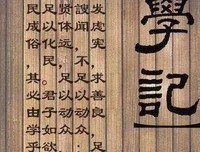 學記
发虑宪，求善良，足
謏闻，不足以动众；
贤体远，足以动众
足以化民。君子如欲
民成俗，其必由学乎